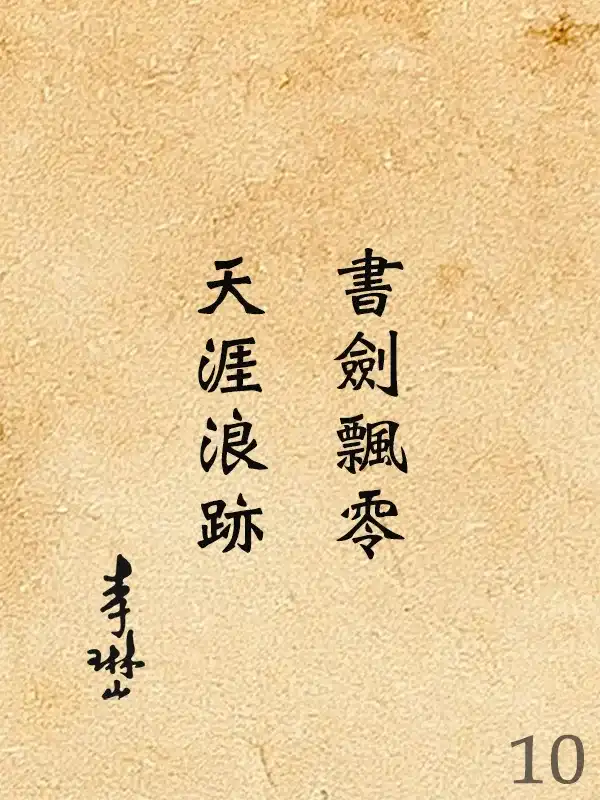 書劍飄零
天涯浪跡
李琳山
10